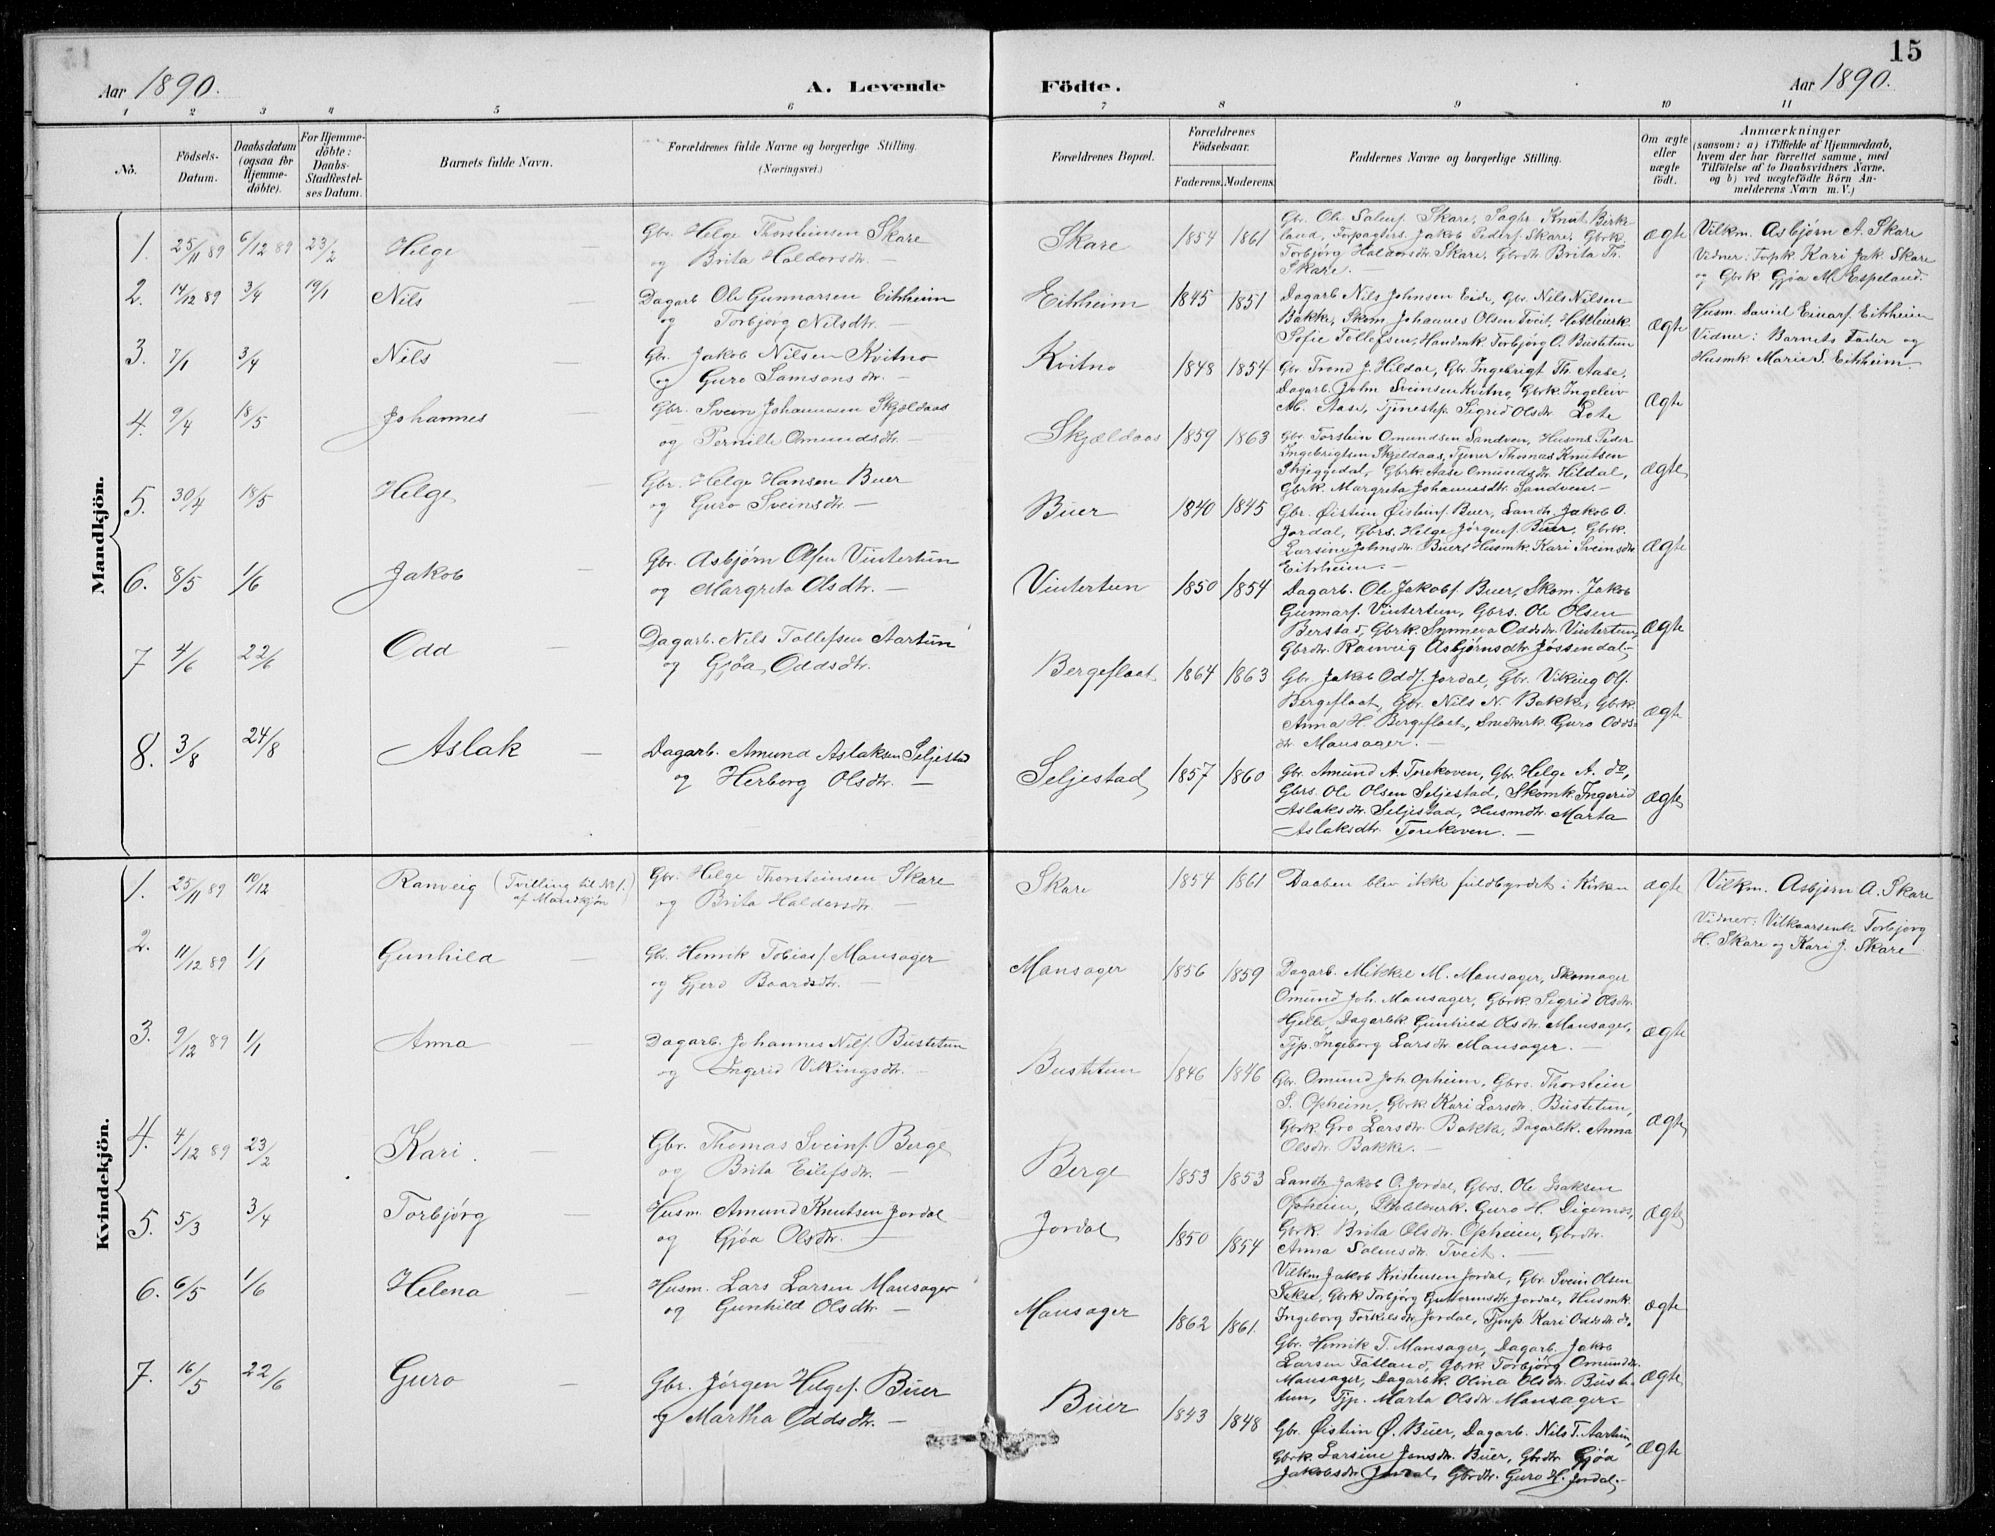 15
Aar 1890.
A. Levende Födte.
Aar 1890.
1 2 3 4 5 6 7 8 9 10 11
No.
Födsels-Datum.
Daabsdatum (ogsaa för Hjemme-döbte).
For Hjemme-döbte: Daabs-Stadfæstel-ses Datum.
Barnets fulde Navn.
Forældrenes fulde Navne og borgerlige Stilling.
(Næringsvei.)
Forældrenes Bopæl.
Forældrenes Födselsaar.
Faderens. Moderens.
Faddernes Navne og borgerlige Stilling.
Om ægte eller uægte födt.
Anmærkninger
(saasom: a) i Tilfælde af Hjemmedaab,
hvem der har forrettet samme, med
Tilföielse af to Daabsvidners Navne,
og b) ved uægtefödte Börn An-
melderens Navn m. V.)
Mandkjön.
1. 25/11 89 6/12 89 23/2 Helge
Gbr. Helge Thorsteinsen Skare
og Brita Haldorsdtr. —
Skare 1854 1861
Gbr. Ole Salmf. Skare, Sagbr Knut Birke-
land, Forpagters. Jakob Pedersf. Skare, Gbrk.
Torbjörg Haldorsdtr. Skare, Gbrdtr. Brita Th.
Skare. —
ægte
Vilkm. Asbjørn A. Skare
Vidner: Forpk. Kari Jak. Skare
og Gbrk Gjøa M. Espeland.
2. 14/12 89 3/4 19/1 Nils —
Dagarb Ole Gunnarsen Eitrheim
og Torbjørg Nilsdtr. —
Eitrheim 1845 1851
Dagarb. Nils Johnsen Eide, Gbr. Nils Nilsen
Bakke, Skom. Johannes Olsen Tveit,
Sofie Tollefsen, Handmk Torbjörg O. Bustetun
ægte
Husm. Daniel Einarsf. Eitrheim
Vidner: Barnets Fader og
Husmk Maria S. Eitrheim.
3. 7/1 3/4 Nils —
Gbr. Jakob Nilsen Kvitno
og Guro Samsonsdtr. —
Kvitno 1848 1854
Gbr Trond J. Hildal, Gbr Ingebrigt Th. Aase,
Dagarb. John Sveinsen Kvitno, Gbrk Ingeleiv
M. Aase, Tjenestep. Sigrid Olsdtr Lote
ægte
4. 9/4 18/5 Johannes —
Gbr. Svein Johannesen Skjældaas
og Pernille Omundsdtr. —
Skjældaas 1859 1863
Gbr Torstein Omundsen Sandven, Husms Peder
Ingebrigtsen Skjeldaas, Tjener Thomas Knutsen
Skjeggedal, Gbrk. Aase Omundsdtr Hildal,
Gbrk. Margreta Johannesdtr. Sandven. —
ægte
5. 30/4 18/5 Helge —
Gbr. Helge Hansen Buer
og Guro Sveinsdtr. —
Buer 1840 1845
Gbr. Øistein Øisteinf. Buer, Landh. Jakob O.
Jordal, Gbrs. Helge Jørgenf. Buer, Gbrk.
Larsine Johnsdtr. Buer, Husmk. Kari Sveinsdtr
Eitrheim. —
ægte
6. 8/5 1/6 Jakob
Gbr. Asbjørn Olsen Vintertun
og Margreta Olsdtr. —
Vintertun 1850 1854
Dagarb. Ole Jakobf. Buer, Skom. Jakob
Gunnarf. Vintertun, Gbrs. Ole Olsen
Berstad, Gbrk. Synneva Oddsdtr. Vintertun,
Gbrdtr. Ranveig Asbjørnsdtr Jøssendal —
ægte
7 4/6 22/6 Odd —
Dagarb. Nils Tollefsen Aartun
og Gjøa Oddsdtr.
Bergeflaat 1864 1863
Gbr. Jakob Oddf. Jordal, Gbr. Viking Olf.
Bergeflaat, Gbr. Nils N. Bakke, Gbrk
Anna H. Bergeflaat, Snedkerk. Guro Odds-
dtr. Mansager. —
ægte
8. 3/8 24/8 Aslak —
Dagarb. Amund Aslaksen Seljestad
og Herborg Olsdtr. —
Seljestad 1857 1860
Gbr. Amund A. Torekoven, Gbr. Helge A. do,
Gbrs. Ole Olsen Seljestad, Skomk. Ingerid
Aslaksdtr. Seljestad, Husmdtr. Marta
Aslaksdtr. Torekoven. —
ægte
Kvindekjön.
1. 25/11 89 10/12 Ranveig (Tvilling til No 1. af Mandkjøn)
Gbr. Helge Thorsteinsen Skare
og Brita Haldorsdtr. —
Skare 1854 1861
Daaben blev ikke fuldbyrdet i Kirken
ægte
Vilkm. Asbjørn A. Skare
Vidner: Vilkaarsenke Torbjørg
H. Skare og Kari J. Skare
2. 11/12 89 1/1 Gunhild —
Gbr. Henrik Tobiasf. Mansager
og Gjero Baardsdtr. —
Mansager 1856 1859
Dagarb. Mikkel M. Mansager, Skomager
Omund Joh. Mansager, Gbrk Sigrid Olsdtr.
Hjelle, Dagarbk Gunhild Olsdtr. Mansager,
Tjp. Ingeborg Larsdtr Mansager. —
ægte
3. 9/12 89 1/1 Anna —
Dagarb. Johannes Nilsf. Bustetun
og Ingerid Vikingsdtr. —
Bustetun 1846 1846
Gbr. Omund Joh. Opheim, Gbrs. Thorstein
S. Opheim, Gbrk Kari Larsdtr. Bustetun,
Gbrk. Gro Larsdtr. Bakke, Dagarbk. Anna
Olsdtr. Bakke. —
ægte
4. 4/12 89 23/2 Kari. —
Gbr. Thomas Sveinf. Berge
og Brita Eilefsdtr. —
Berge 1853 1853
Landh Jakob O. Jordal, Gbrs. Ole Isaksen
Opheim, Skoldlærerk. Guro H. Digernes,
Gbrk. Brita Olsdtr. Opheim, Gbrdtr.
Anna Salmsdtr. Tveit. —
ægte
5. 5/3 3/4 Torbjørg —
Husm. Amund Knutsen Jordal
og Gjøa Olsdtr. —
Jordal 1850 1854
Vilkm Jakob Kristensen Jordal, Gbr. Svein Olsen
Sekse, Gbrk Torbjörg Guttormsdtr Jordal, Husmk
Ingeborg Torkilsdtr Jordal, Tjensp. Kari Oddsdtr do.
ægte
6. 6/5 1/6 Helena —
Husm. Lars Larsen Mansager
og Gunhild Olsdtr. —
Mansager 1862 1861.
Gbr. Henrik T. Mansager, Dagarb. Jakob
Larsen Fatland, Gbrk. Torbjörg Omundsdtr.
Mansager, Dagarbk. Olina Olsdtr. Buste-
tun, Tjp. Marta Olsdtr Mansager. —
ægte
7. 16/5 22/6 Guro —
Gbr. Jørgen Helgef. Buer
og Martha Oddsdtr. —
Buer 1843 1848
Gbr. Øistein Ø. Buer, Dagarb. Nils T. Aartun,
Gbrk. Larsine Jonsdtr. Buer, Gbrdtr. Gjøa
Jakobsdtr. Jordal, Gbrdtr. Guro H. Jordal. —
ægte